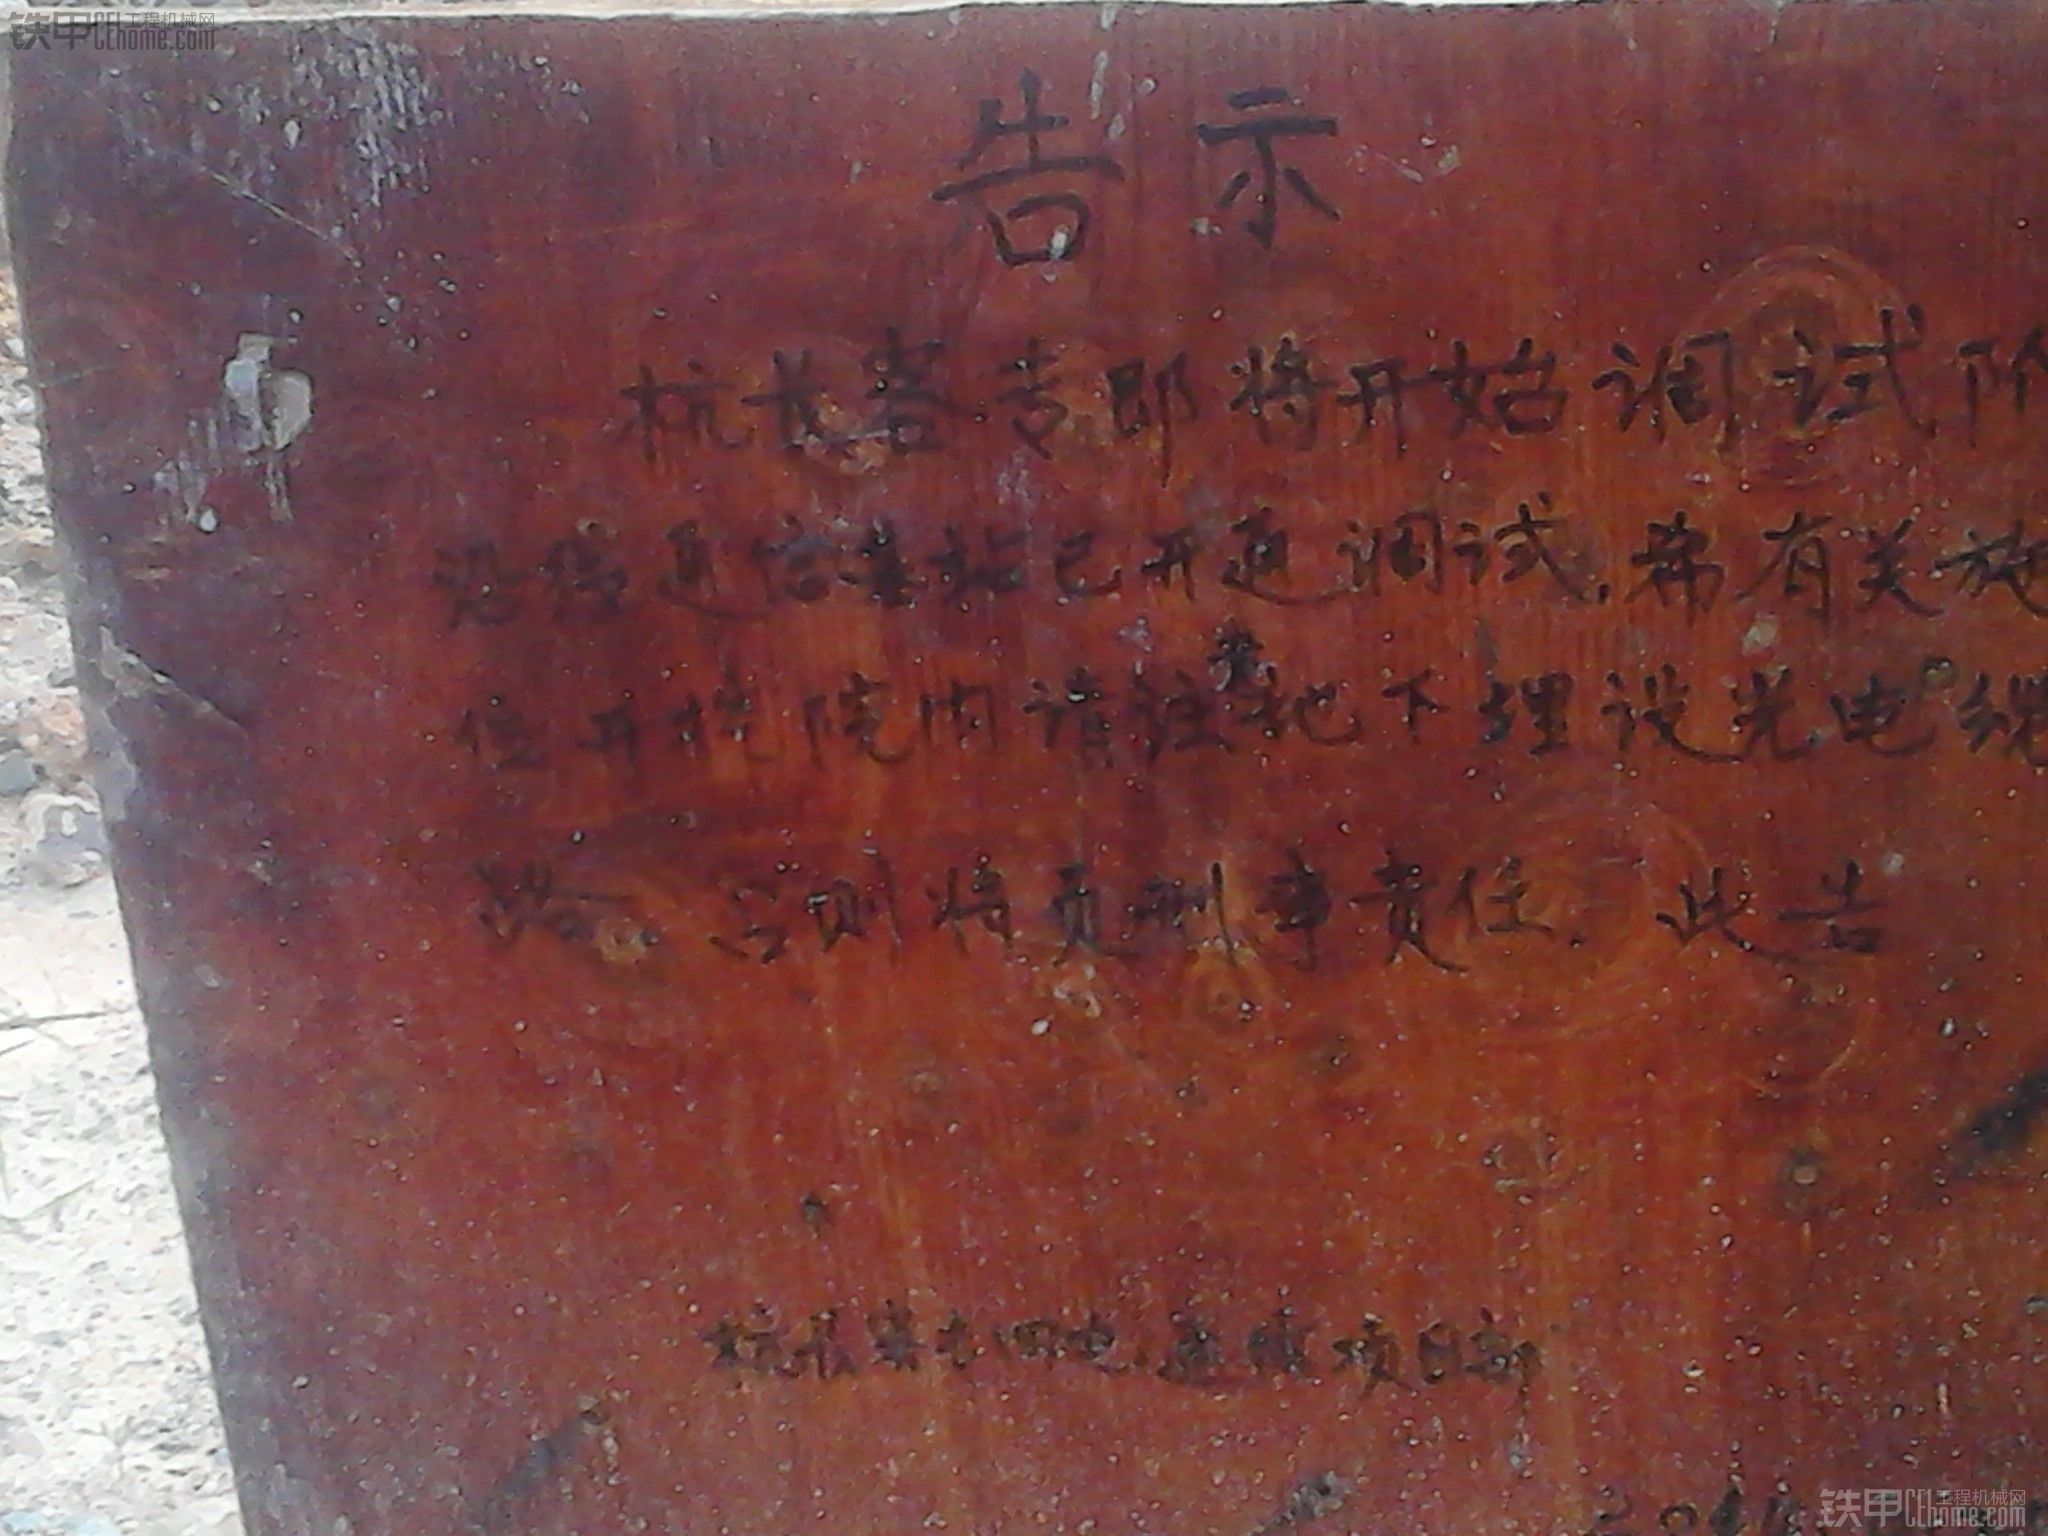 铁甲CEhome.com 工程机械网
告示
杭长客专即将开始调试阶
沿线通信基站已开通调试.希有关施
位开挖院内请注意地下埋设光电缆
路.否则将负刑事责任.此告
杭长客专四电.通信项目部
铁甲CEhome.com 工程机械网